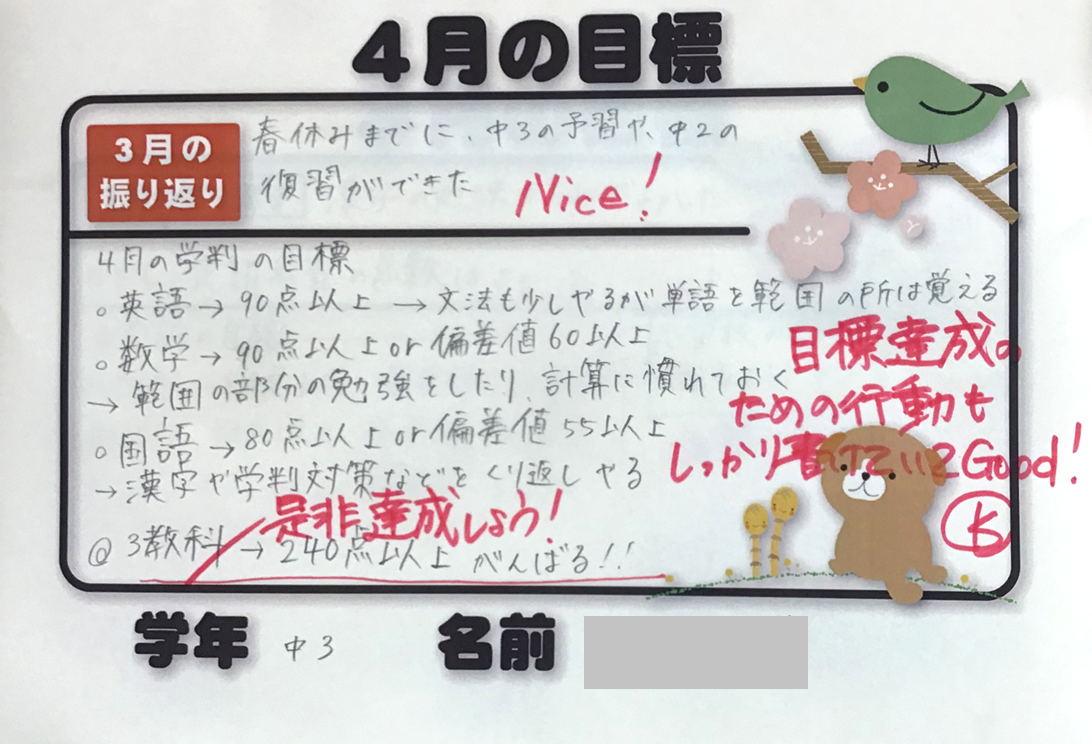 4月の目標
3月の
振り返り
春休みまでに、中3の予習や、中2の
復習ができた
Nice!
4月の学判の目標
。英語→90点以上→文法も少しやるが単語を範囲の所は覚える
。数学→90点以上or偏差値60以上
→範囲の部分の勉強をしたり、計算に慣れておく
目標達成の
ための行動も
しっかり書けていてGood!
K
。国語→80点以上or偏差値55以上
→漢字や学判対策などをくり返しやる
是非達成しよう!
@ 3教科→240点以上がんばる!!
学年 中3 名前